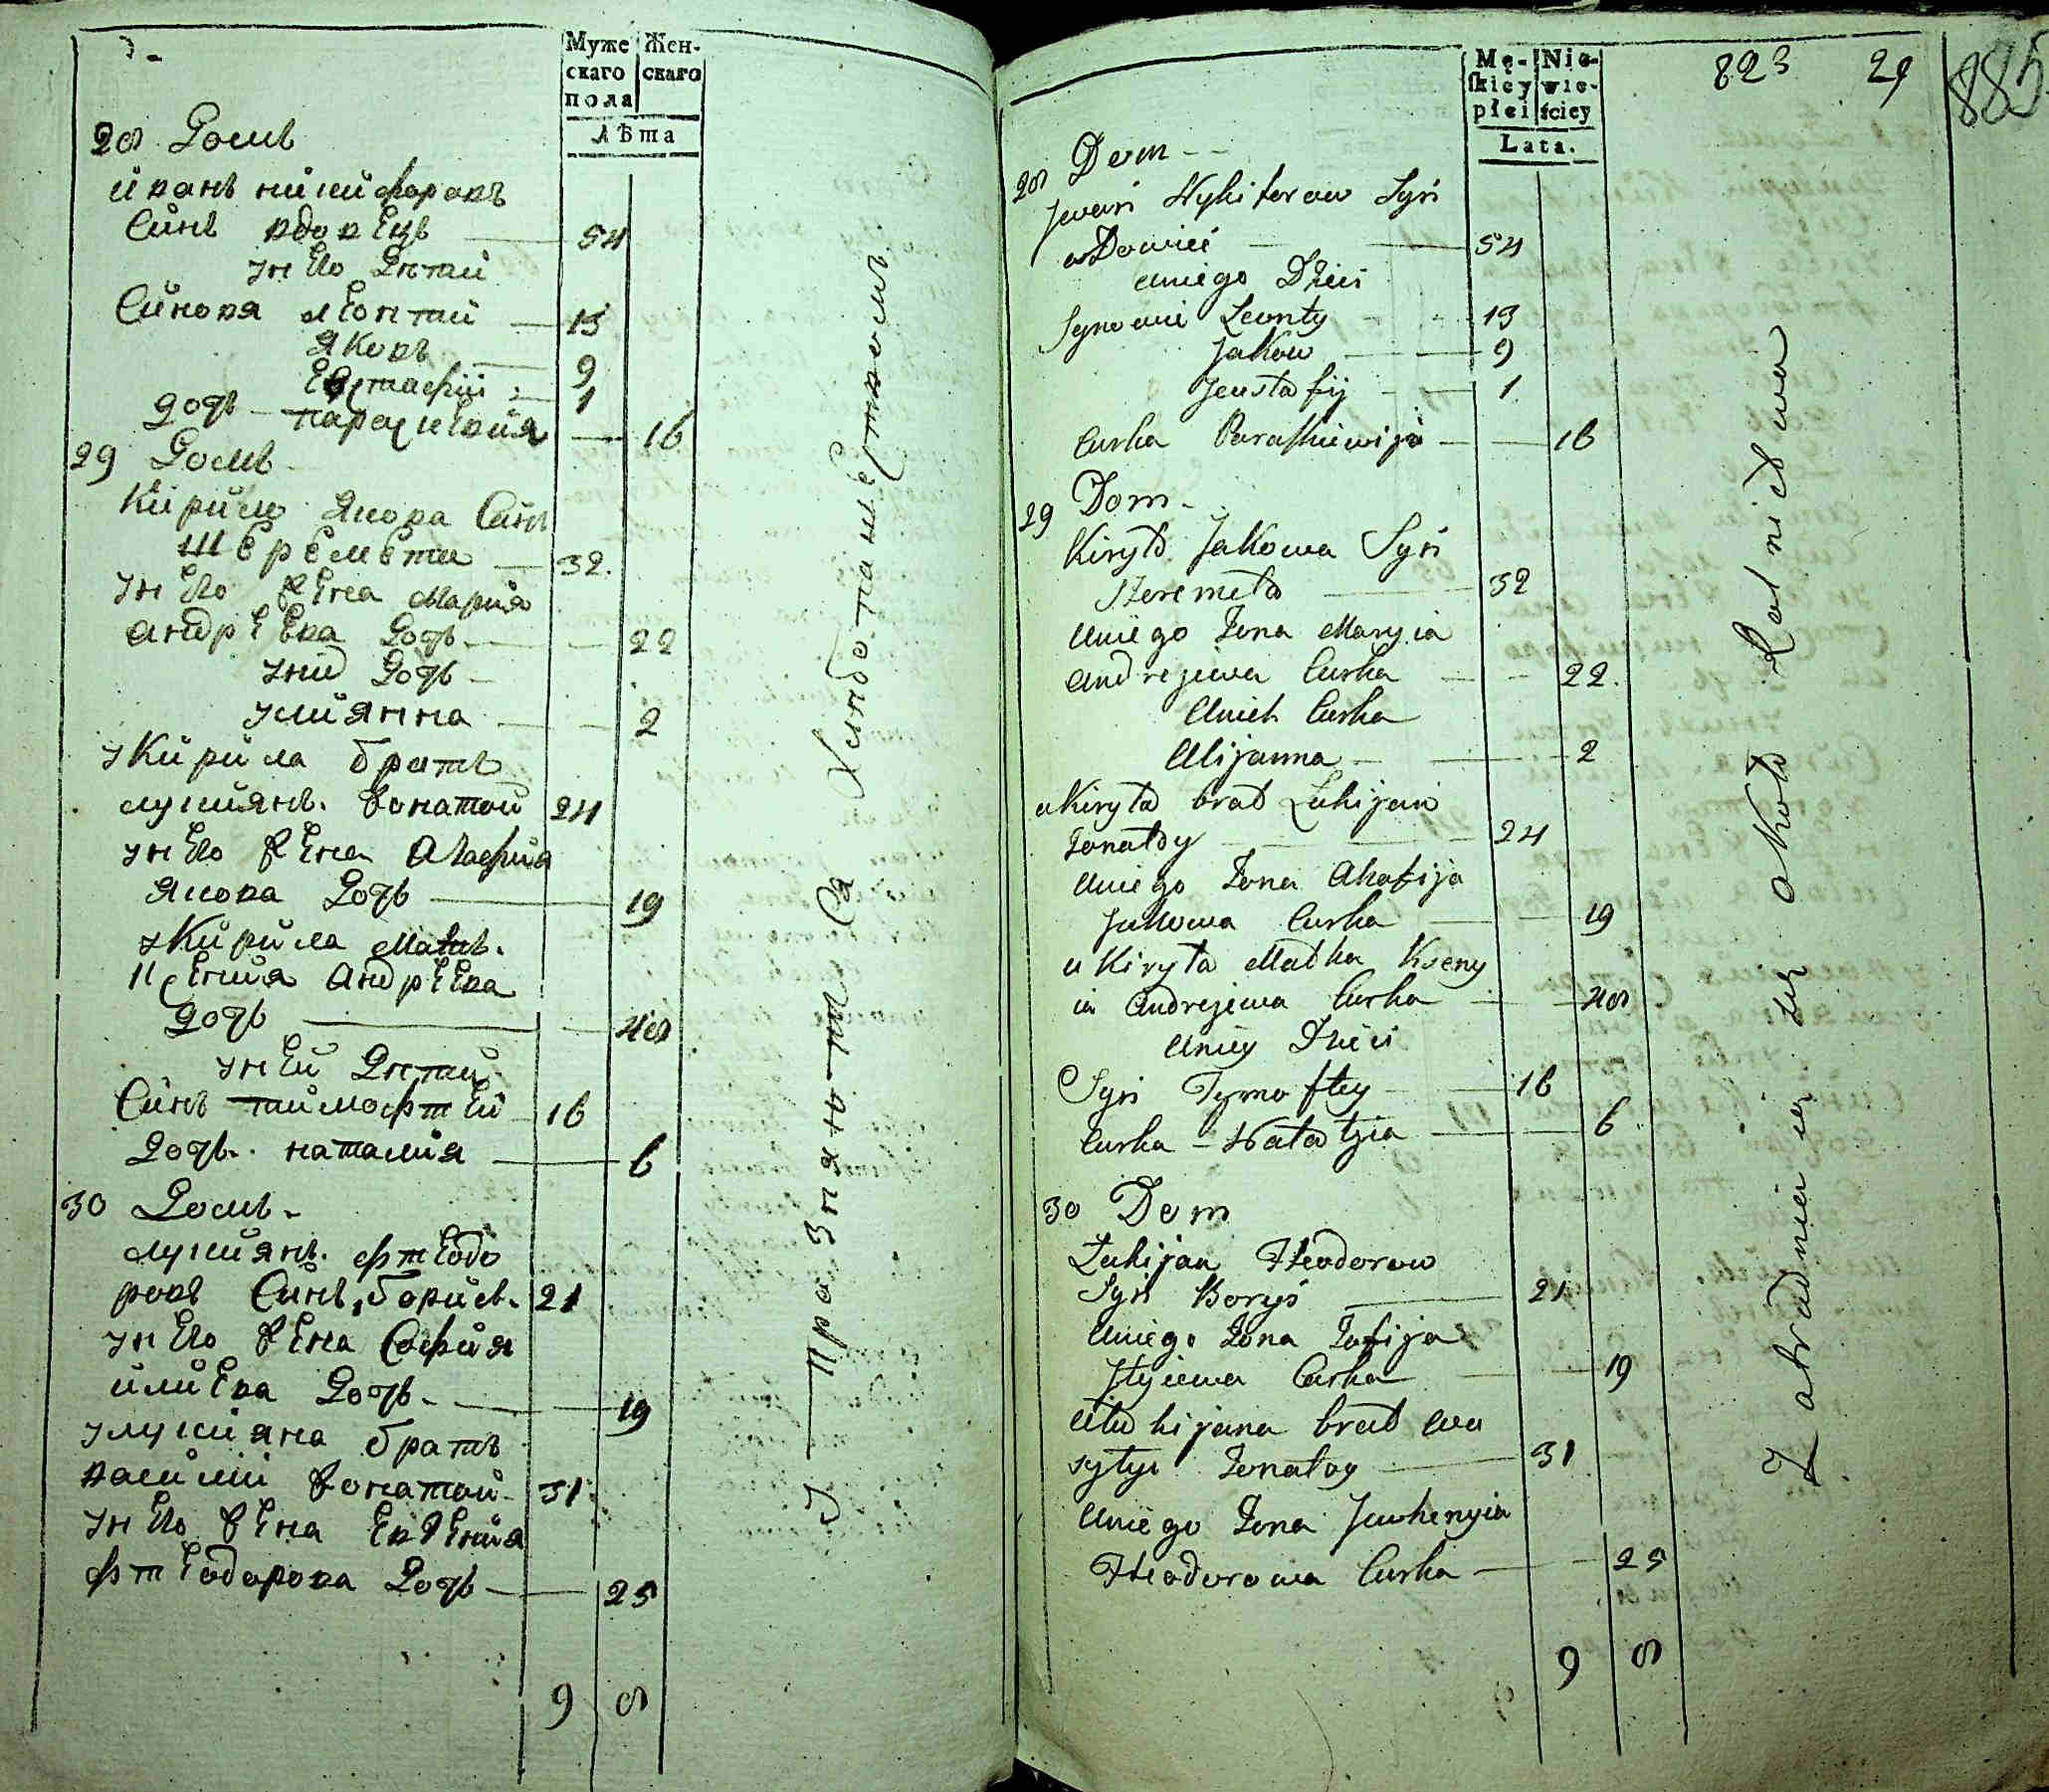 Муже
скаго
пола
Жен-
скаго
Лѣта
28 Домъ
Иванъ Никифоровъ
Синъ вдовецъ 54
у него Дѣтѝ
Синовя Леонтий 13
Яковъ 9
Евстафій 1
Дочь Параскевия 16
29 Домъ
Кирило Якова Синъ
Шеремета 32.
у него жена Мария
Андреева Дочь 22
у нихъ Дочь
Улиянна 2
у Кирила братъ
Лукиянъ. жонатой 24
у него жена Агафия
Якова Дочь 19
у Кирила Матъ.
Ксения Андреева
Дочь 48
у ней Дѣти
Синъ Тимофтей 16
Дочь. Наталия 6
30 Домъ
Лукиянъ. Фтеодо
ровъ Синъ, Борисъ. 21
у него жена София
Илиева Дочь 19
у Лукияна братъ
Василий жонатой 31
у него жена Евгения
Фтеодорова Дочь 25
9 8
Упразнянтся Хлѣбопашествомъ
Mę-
skiey
płci
Nie-
wie-
ściey
Lata.
823 29
885
28 Dom
Jwan Nykiforow Syn
wDowieć 54
uniego Dzieci
Synowie Leonty 13
Jakow 9
Jeustafij 1
Curka Paraskiewija 16
29 Dom
Kiryło Jakowa Syn
Szeremeta 32
uniego Zona Maryia
Andrejewa Curka 22.
Unich Curka
Ulijanna 2
u Kiryła brat Łukijan
Zonaty 24
uniego Zona Ahafija
Jakowa Curka 19
u Kiryła Matka Kseny
ia Andrejewa Curka 48
Uniey Dzieci
Syn Tymoftey 16
Curka Natalyia 6
30 Dom
Łukijan Fteodorow
Syn Borys 21
Uniego Zona Zofija
Jlyiewa Curka 19
UŁukijana brat Wa
syłyi Zonatoy 31
Uniego Zona Jewhenyia
Fteodorowa Curka 25
9 8
Zatrudnieniia się około Rolnictwa